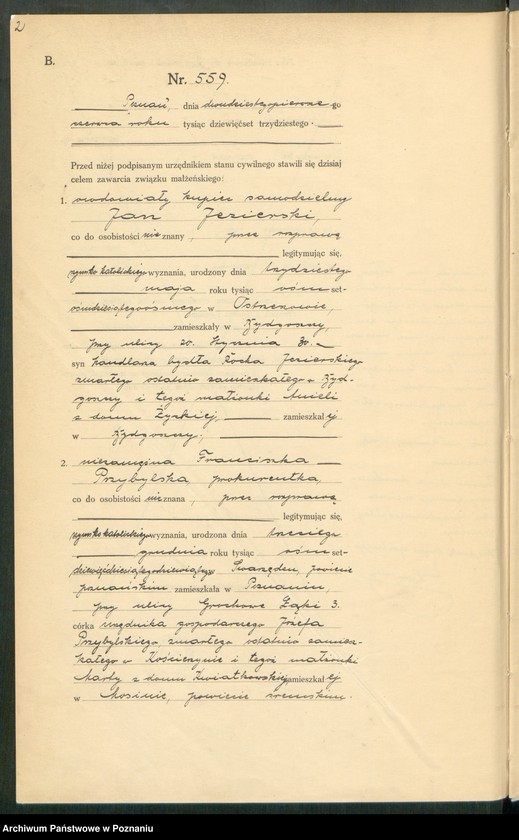 2
B.
Nr. 559.
Poznań, dnia dwudziestegopierwszego
czerwca roku tysiąc dziewięćset trzydziestego
Przed niżej podpisanym urzędnikiem stanu cywilnego stawili się dzisiaj
celem zawarcia związku małżeńskiego:
1. owdowiały kupiec samodzielny
Jan Jezierski,
co do osobistości nie znany, przez rozprawę
legitymując się,
rzymsko katolickiego wyznania, urodzony dnia trzydziestego
maja roku tysiąc ośmset-
ośmdziesiątegoósmego w Ostrzeszowie,
zamieszkały w Bydgoszczy,
przy ulicy 20. Stycznia 30.
syn handlarza bydła Rocha Jezierskiego
zmarłego ostatnio zamieszkałego w Byd-
goszczy i tegoż małżonki Anieli
z domu Życkiej, zamieszkałej
w Bydgoszczy;
2. niezamężna Franciszka
Przybylska prokurentka,
co do osobistości nie znana, przez rozprawę
legitymując się,
rzymsko katolickiego wyznania, urodzona dnia trzeciego
grudnia roku tysiąc ośmset-
dziewięćdziesiątegodziewiątego Swarzędzu, powiecie
poznańskim zamieszkała w Poznaniu,
przy ulicy Grochowe Łąki 3.
córka urzędnika gospodarczego Józefa
Przybylskiego zmarłego ostatnio zamiesz-
kałego w i tegoż małżonki
Marty z domu Kwiatkowskiej zamieszkałej
w Mosinie, powiecie śremskim.
Archiwum Państwowe w Poznaniu